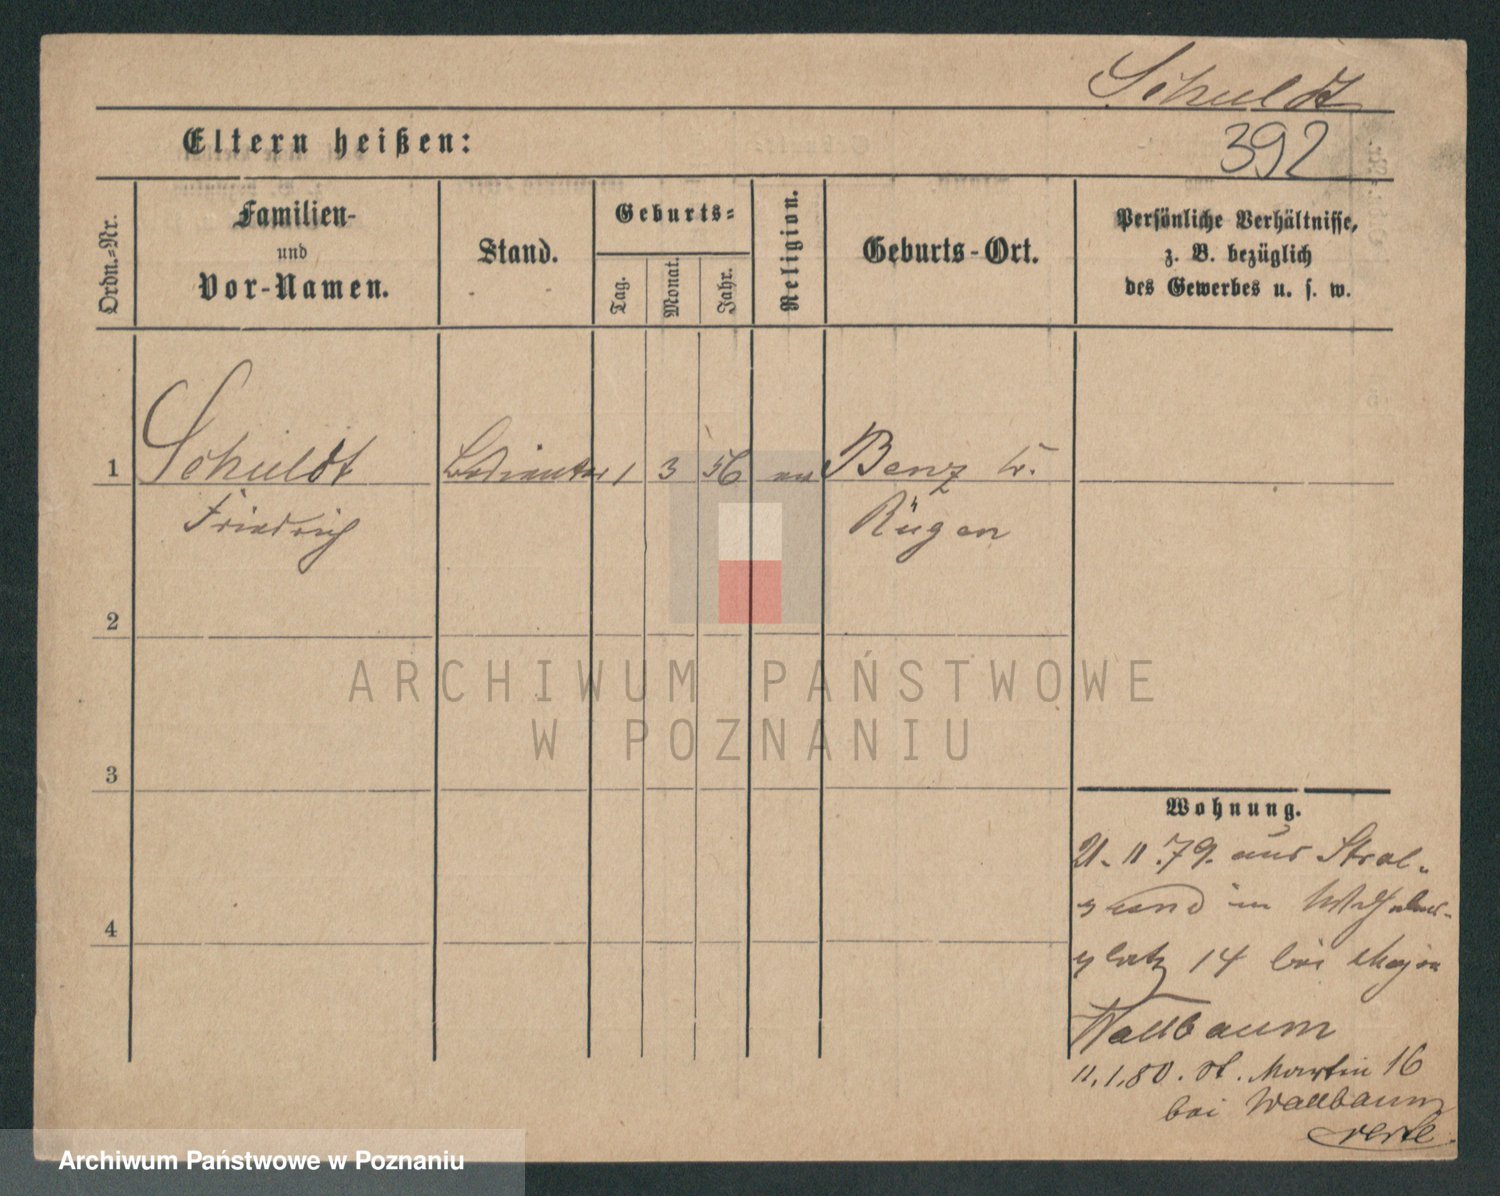 Schuldt
Eltern heißen:
392
Ordn.-Nr.
Familien-
und
Vor-Namen.
Stand.
Geburts-
Tag.
Monat.
Jahr.
Religion.
Geburts-Ort.
Persönliche Verhältnisse,
z. B. bezüglich
des Gewerbes u. s. w.
1 Schuldt Bedienter 1 3 56 ev Benz
Friedrich Rügen
2
3
4
ARCHIWUM PAŃSTWOWE
W POZNANIU
Wohnung.
21. 11. 79. aus Stral-
sund in Wilhelms-
platz 14 bei Major
Wallbaum
11. 1. 80. St. Martin 16
bei Wallbaum
Archiwum Państwowe w Poznaniu